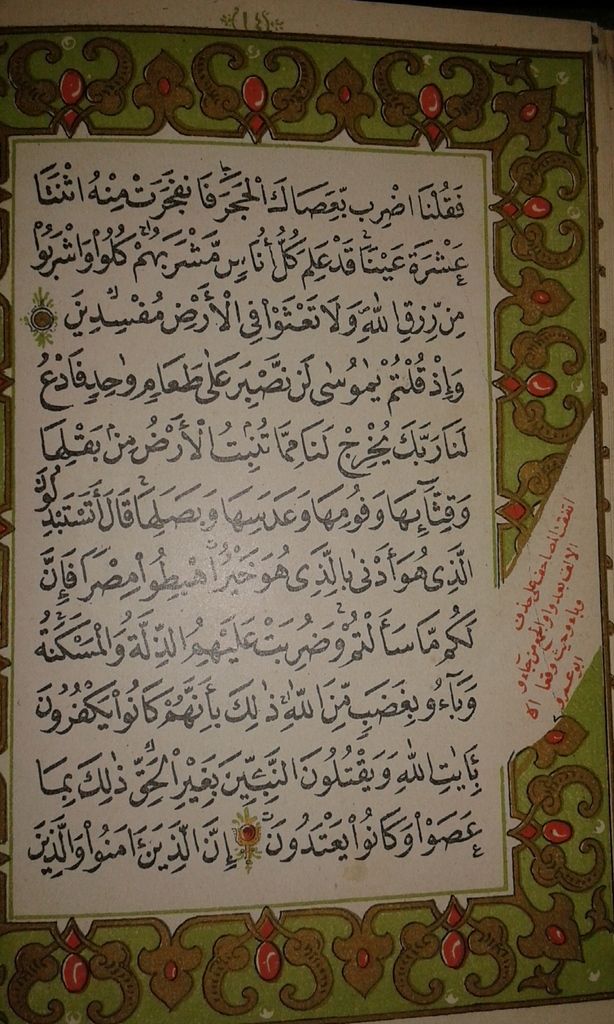 ١٤
فَقُلْنَا اضْرِب بِّعَصَاكَ الْحَجَرَ فَانفَجَرَتْ مِنْهُ اثْنَتَا
عَشْرَةَ عَيْنًا قَدْ عَلِمَ كُلُّ أُنَاسٍ مَّشْرَبَهُمْ كُلُوا۟ وَاشْرَبُوا۟
مِن رِّزْقِ اللَّهِ وَلَا تَعْثَوْا۟ فِى الْأَرْضِ مُفْسِدِينَ
وَإِذْ قُلْتُمْ يَٰمُوسَىٰ لَن نَّصْبِرَ عَلَىٰ طَعَامٍ وَٰحِدٍ فَادْعُ
لَنَا رَبَّكَ يُخْرِجْ لَنَا مِمَّا تُنۢبِتُ الْأَرْضُ مِنۢ بَقْلِهَا
وَقِثَّآئِهَا وَفُومِهَا وَعَدَسِهَا وَبَصَلِهَا قَالَ أَتَسْتَبْدِلُونَ
الَّذِى هُوَ أَدْنَىٰ بِالَّذِى هُوَ خَيْرٌ اهْبِطُوا۟ مِصْرًا فَإِنَّ
لَكُم مَّا سَأَلْتُمْ وَضُرِبَتْ عَلَيْهِمُ الذِّلَّةُ وَالْمَسْكَنَةُ
وَبَآءُو بِغَضَبٍ مِّنَ اللَّهِ ذَٰلِكَ بِأَنَّهُمْ كَانُوا۟ يَكْفُرُونَ
بِـَٔايَٰتِ اللَّهِ وَيَقْتُلُونَ النَّبِيِّـۧنَ بِغَيْرِ الْحَقِّ ذَٰلِكَ بِمَا
عَصَوا۟ وَّكَانُوا۟ يَعْتَدُونَ إِنَّ الَّذِينَ ءَامَنُوا۟ وَالَّذِينَ
اتفقت المصاحف على حذف
الالف بعد واو الجمع من جاءو
وباءو حيث وقعا
ابو عمرو اه